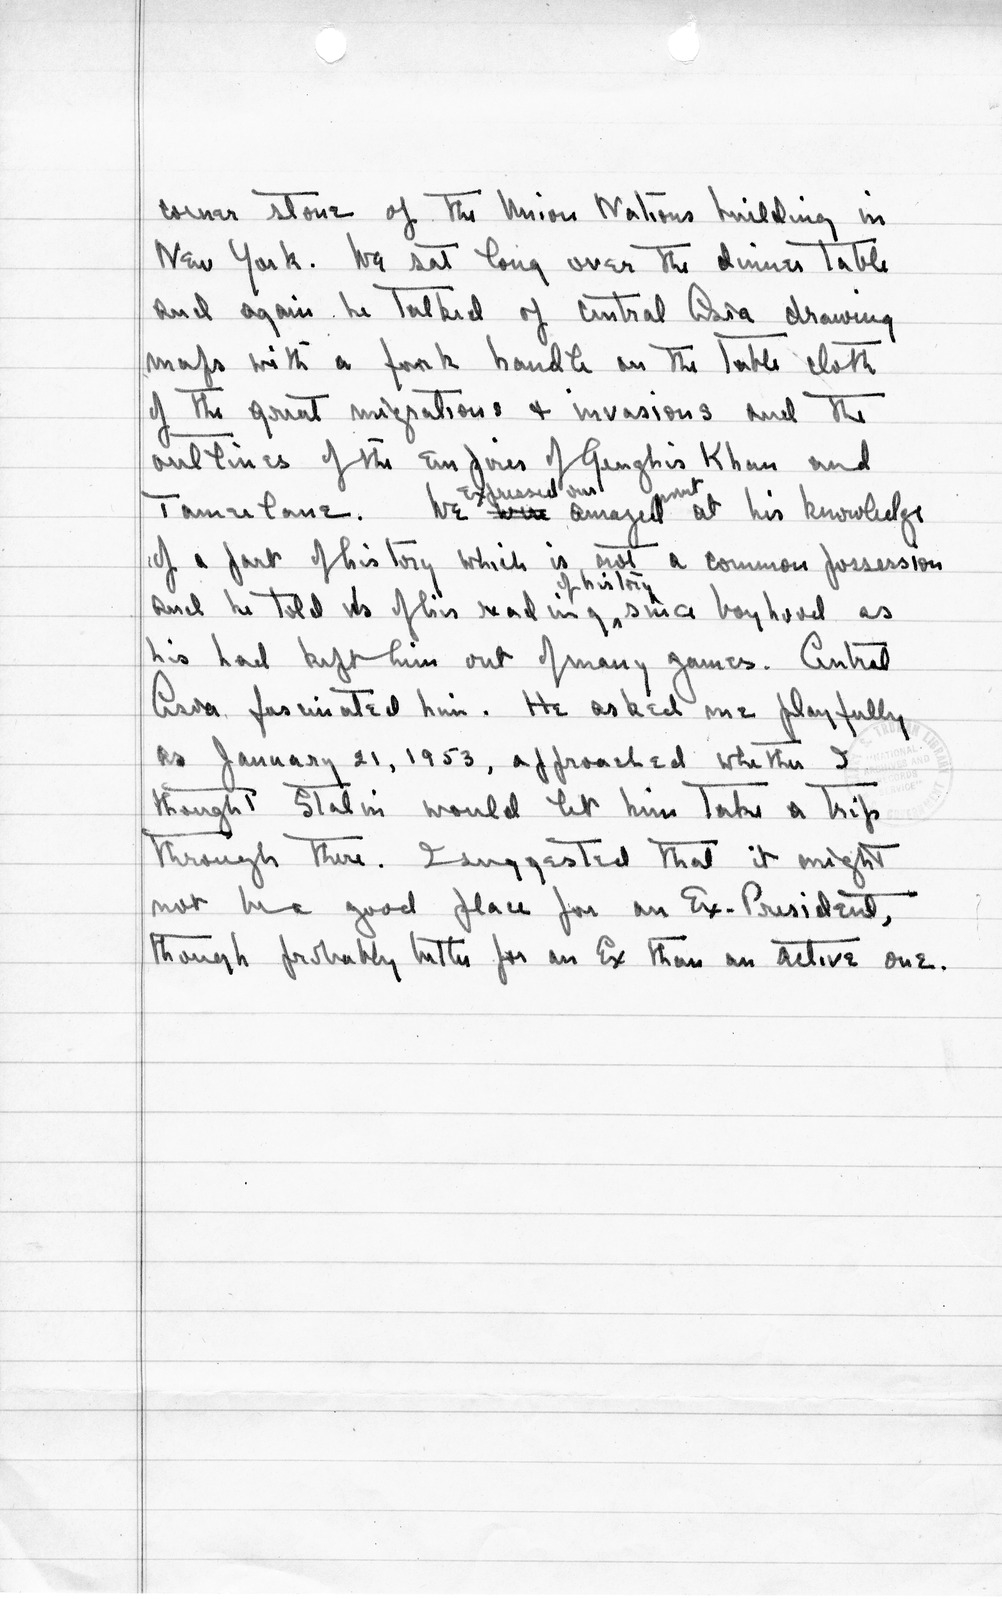 corner stone of the Union Nations building in
New York. We sat long over the dinner table
and again he talked of central Asia drawing
maps with a fork handle on the table cloth
of the great migrations & invasions and the
outlines of the empires of Genghis Khan and
Tamerlane. We expressed our were amazement at his knowledge
of a part of history which is not a common possession
and he told us of his reading of history, since boyhood as
his had kept him out of many games. Central
Asia fascinated him. He asked me playfully
as January 21, 1953, approached whether I
thought Stalin would let him take a trip
through there. I suggested that it might
not be a good place for an Ex-President,
though probably better for an Ex than an active one.
TRUMAN LIBRARY
"NATIONAL
ARCHIVES AND
RECORDS
SERVICE"